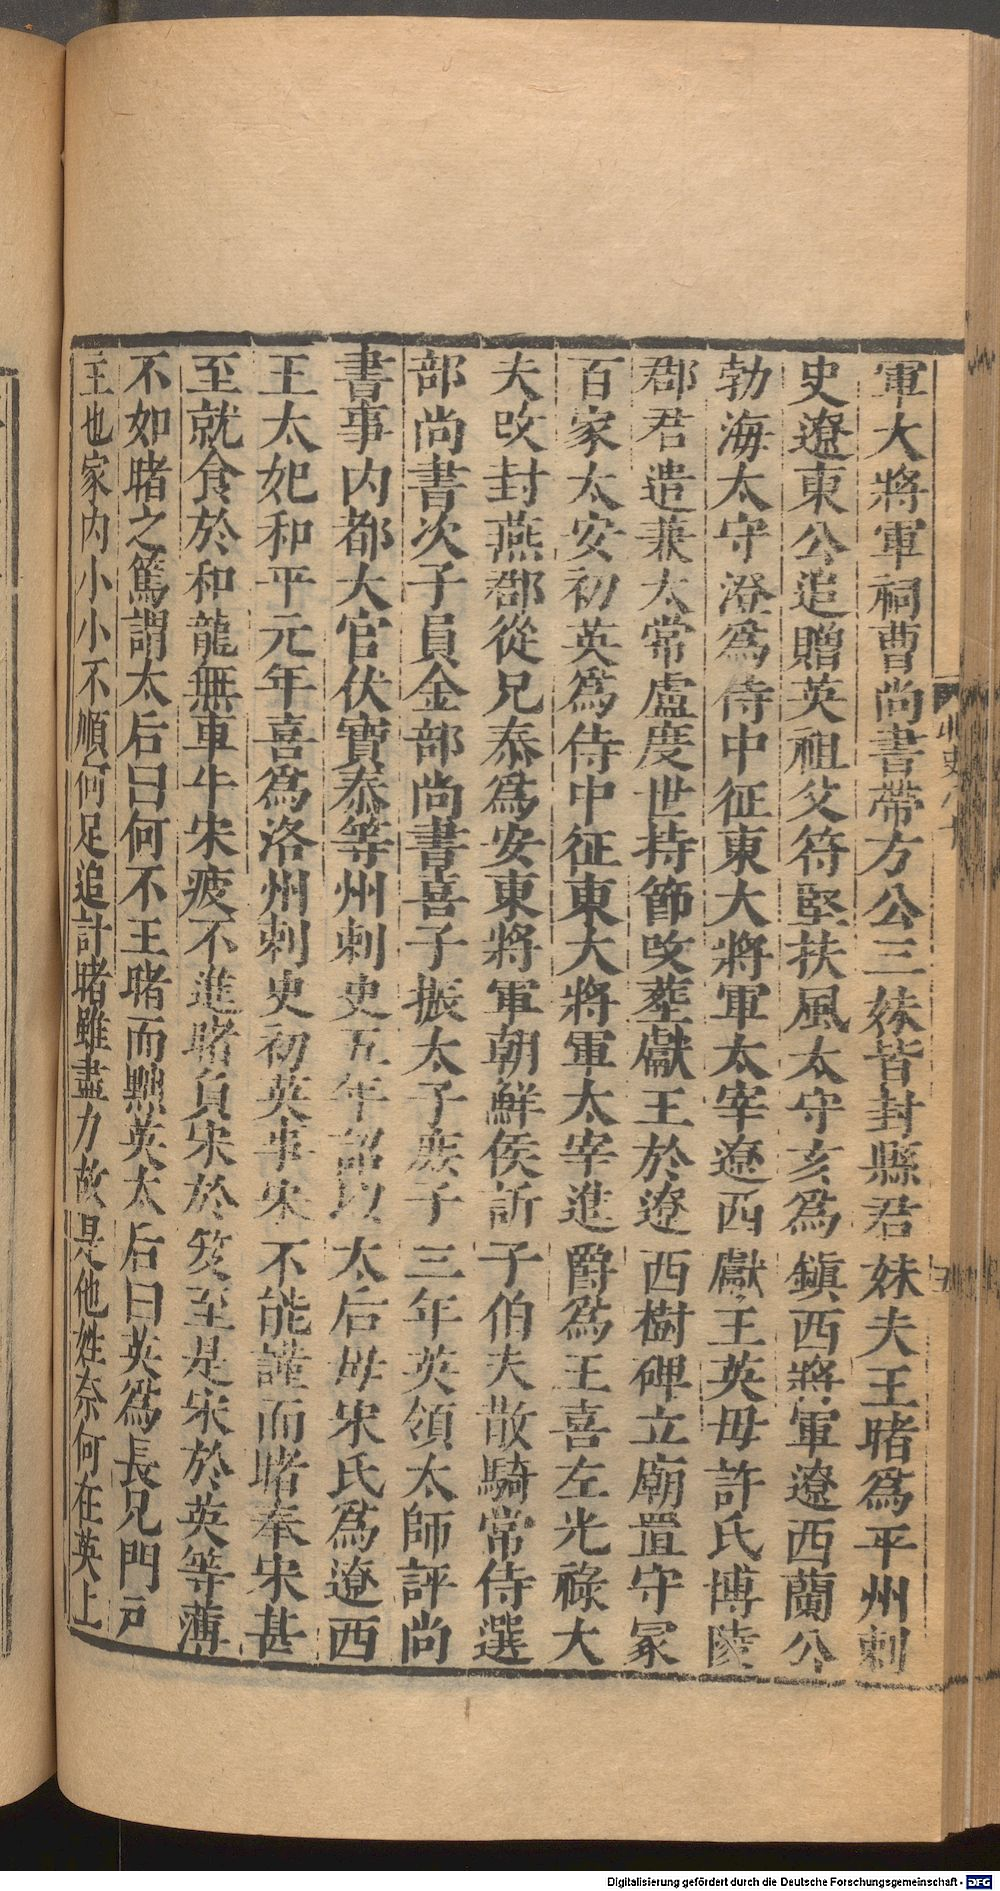 軍大將軍祠曹尚書帶方公三妹皆封縣君妹夫王睹爲平州刺
史遼東公追贈英祖父符堅扶風太守亥爲鎭西將軍遼西蘭公
勃海太守澄爲侍中征東大將軍太宰遼西獻王英毋許氏博陵
郡君遣兼太常盧度世持節攺葬獻王於遼西樹碑立廟置守冢
百家太安初英爲侍中征東大將軍太宰進爵爲王喜左光祿大
夫攺封燕郡從兄泰爲安東將軍朝鮮侯訢子伯夫散騎常侍選
部尚書次子員金部尚書喜子振太子庶子三年英領太師評尚
書事内都大官伏寶泰等州刺史五年詔以太后毋宋氏爲遼西
王太妃和平元年喜爲洛州刺史初英事宋不能謹而睹奉宋甚
至就食於和龍無車牛宋疲不進睹負宋於笈至是宋於英等薄
不如睹之篤謂太后曰何不王睹而黜英太后曰英爲長兄門戸
主也家内小小不順何足追計睹雖盡力故是他姓奈何在英上
北史八十
Digitalisierung gefördert durch die Deutsche Forschungsgemeinschaft - DFG